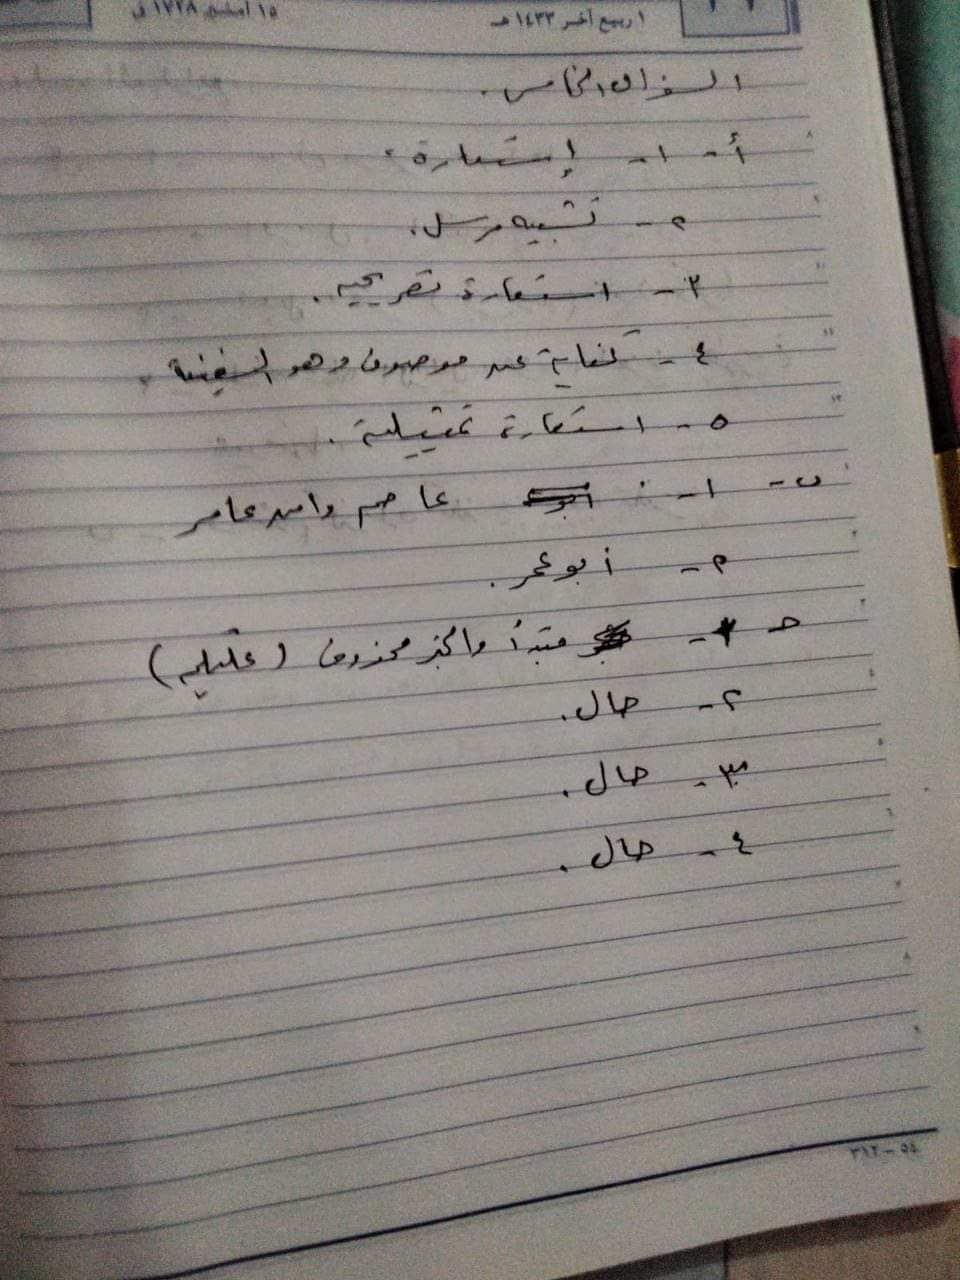 ١ ربيع آخر ١٤٣٣ هـ
١٥ أمشير ١٧٢٨ ق
السؤال الخامس.
أ - ١- إستعارة.
٢- تشبيه مرسل.
٣- استعارة تصريحيه.
٤- كناية عن موصوف وهو السفينة.
٥- استعارة تمثيلية.
ب - ١- عاصم وابن عامر
٢- أبو عمر.
حـ - ١- مبتدأ والخبر محذوف (عليه)
٢- حال.
٣- حال.
٤- حال.
٥٤-٣١٢